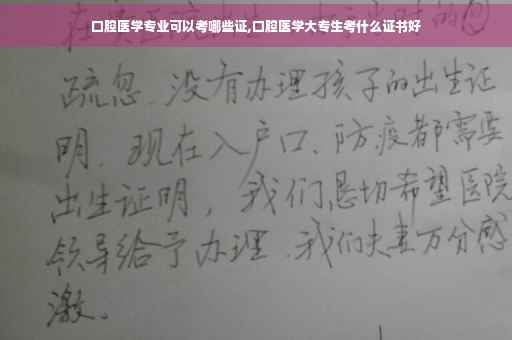 口腔医学专业可以考哪些证,口腔医学大专生考什么证书好
疏忽、没有办理孩子的出生证
明、现在入户口、防疫都需要
出生证明，我们恳切希望医院
领导给予办理、我们夫妻万分感
激。